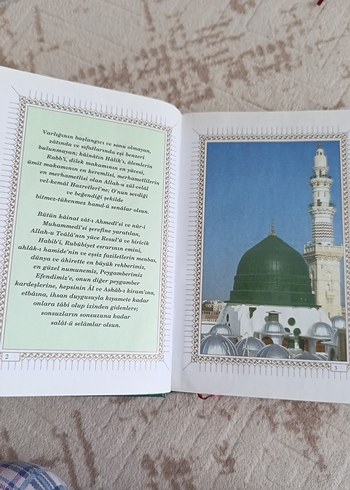 Varlığının başlangıcı ve sonu olmayan,
zâtında ve sıfatlarında eşi benzeri
bulunmayan; kâinâtın Hâlik'ı, âlemlerin
Rabb'i, dilek makamının en yücesi,
ümit makamının en keremlisi, merhametlilerin
en merhametlisi olan Allah-u zül-celâl
vel-kemâl Hazretleri'ne; O'nun sevdiği
ve beğendiği şekilde
bitmez-tükenmez hamd-ü senâlar olsun.
Bütün kâinat zât-ı Ahmedî'si ve nûr-i
Muhammedî'si şerefine yaratılan,
Allah-u Teâlâ'nın yüce Resul'ü ve biricik
Habib'i, Rububiyet esrarının emini,
ahlâk-ı hamide'nin ve eşsiz faziletlerin menbaı,
dünya ve âhirette en büyük rehberimiz,
en güzel numunemiz, Peygamberimiz
Efendimiz'e, onun diğer peygamber
kardeşlerine, hepsinin Âl ve Ashâb-ı kiram'ına,
etbâına, ihsan duygusuyla kıyamete kadar
onlara tâbi olup izinden gidenlere;
sonsuzların sonsuzuna kadar
salât-ü selâmlar olsun.
2